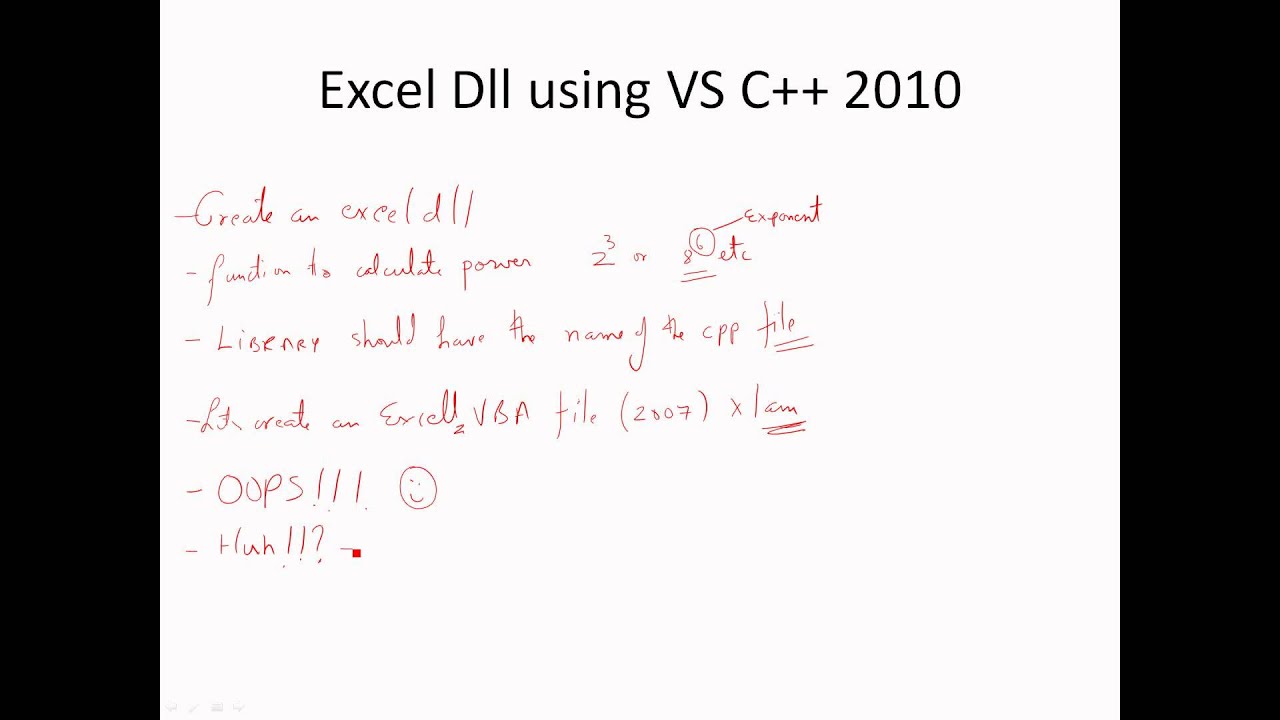 Excel Dll using VS C++ 2010
- Create an excel dll
Exponent
- function to calculate power 2³ or 8⁶ etc
- LIBRARY should have the name of the cpp file
- create an Excel VBA file (2007) xlam
- OOPS!!!
- Huh!!?